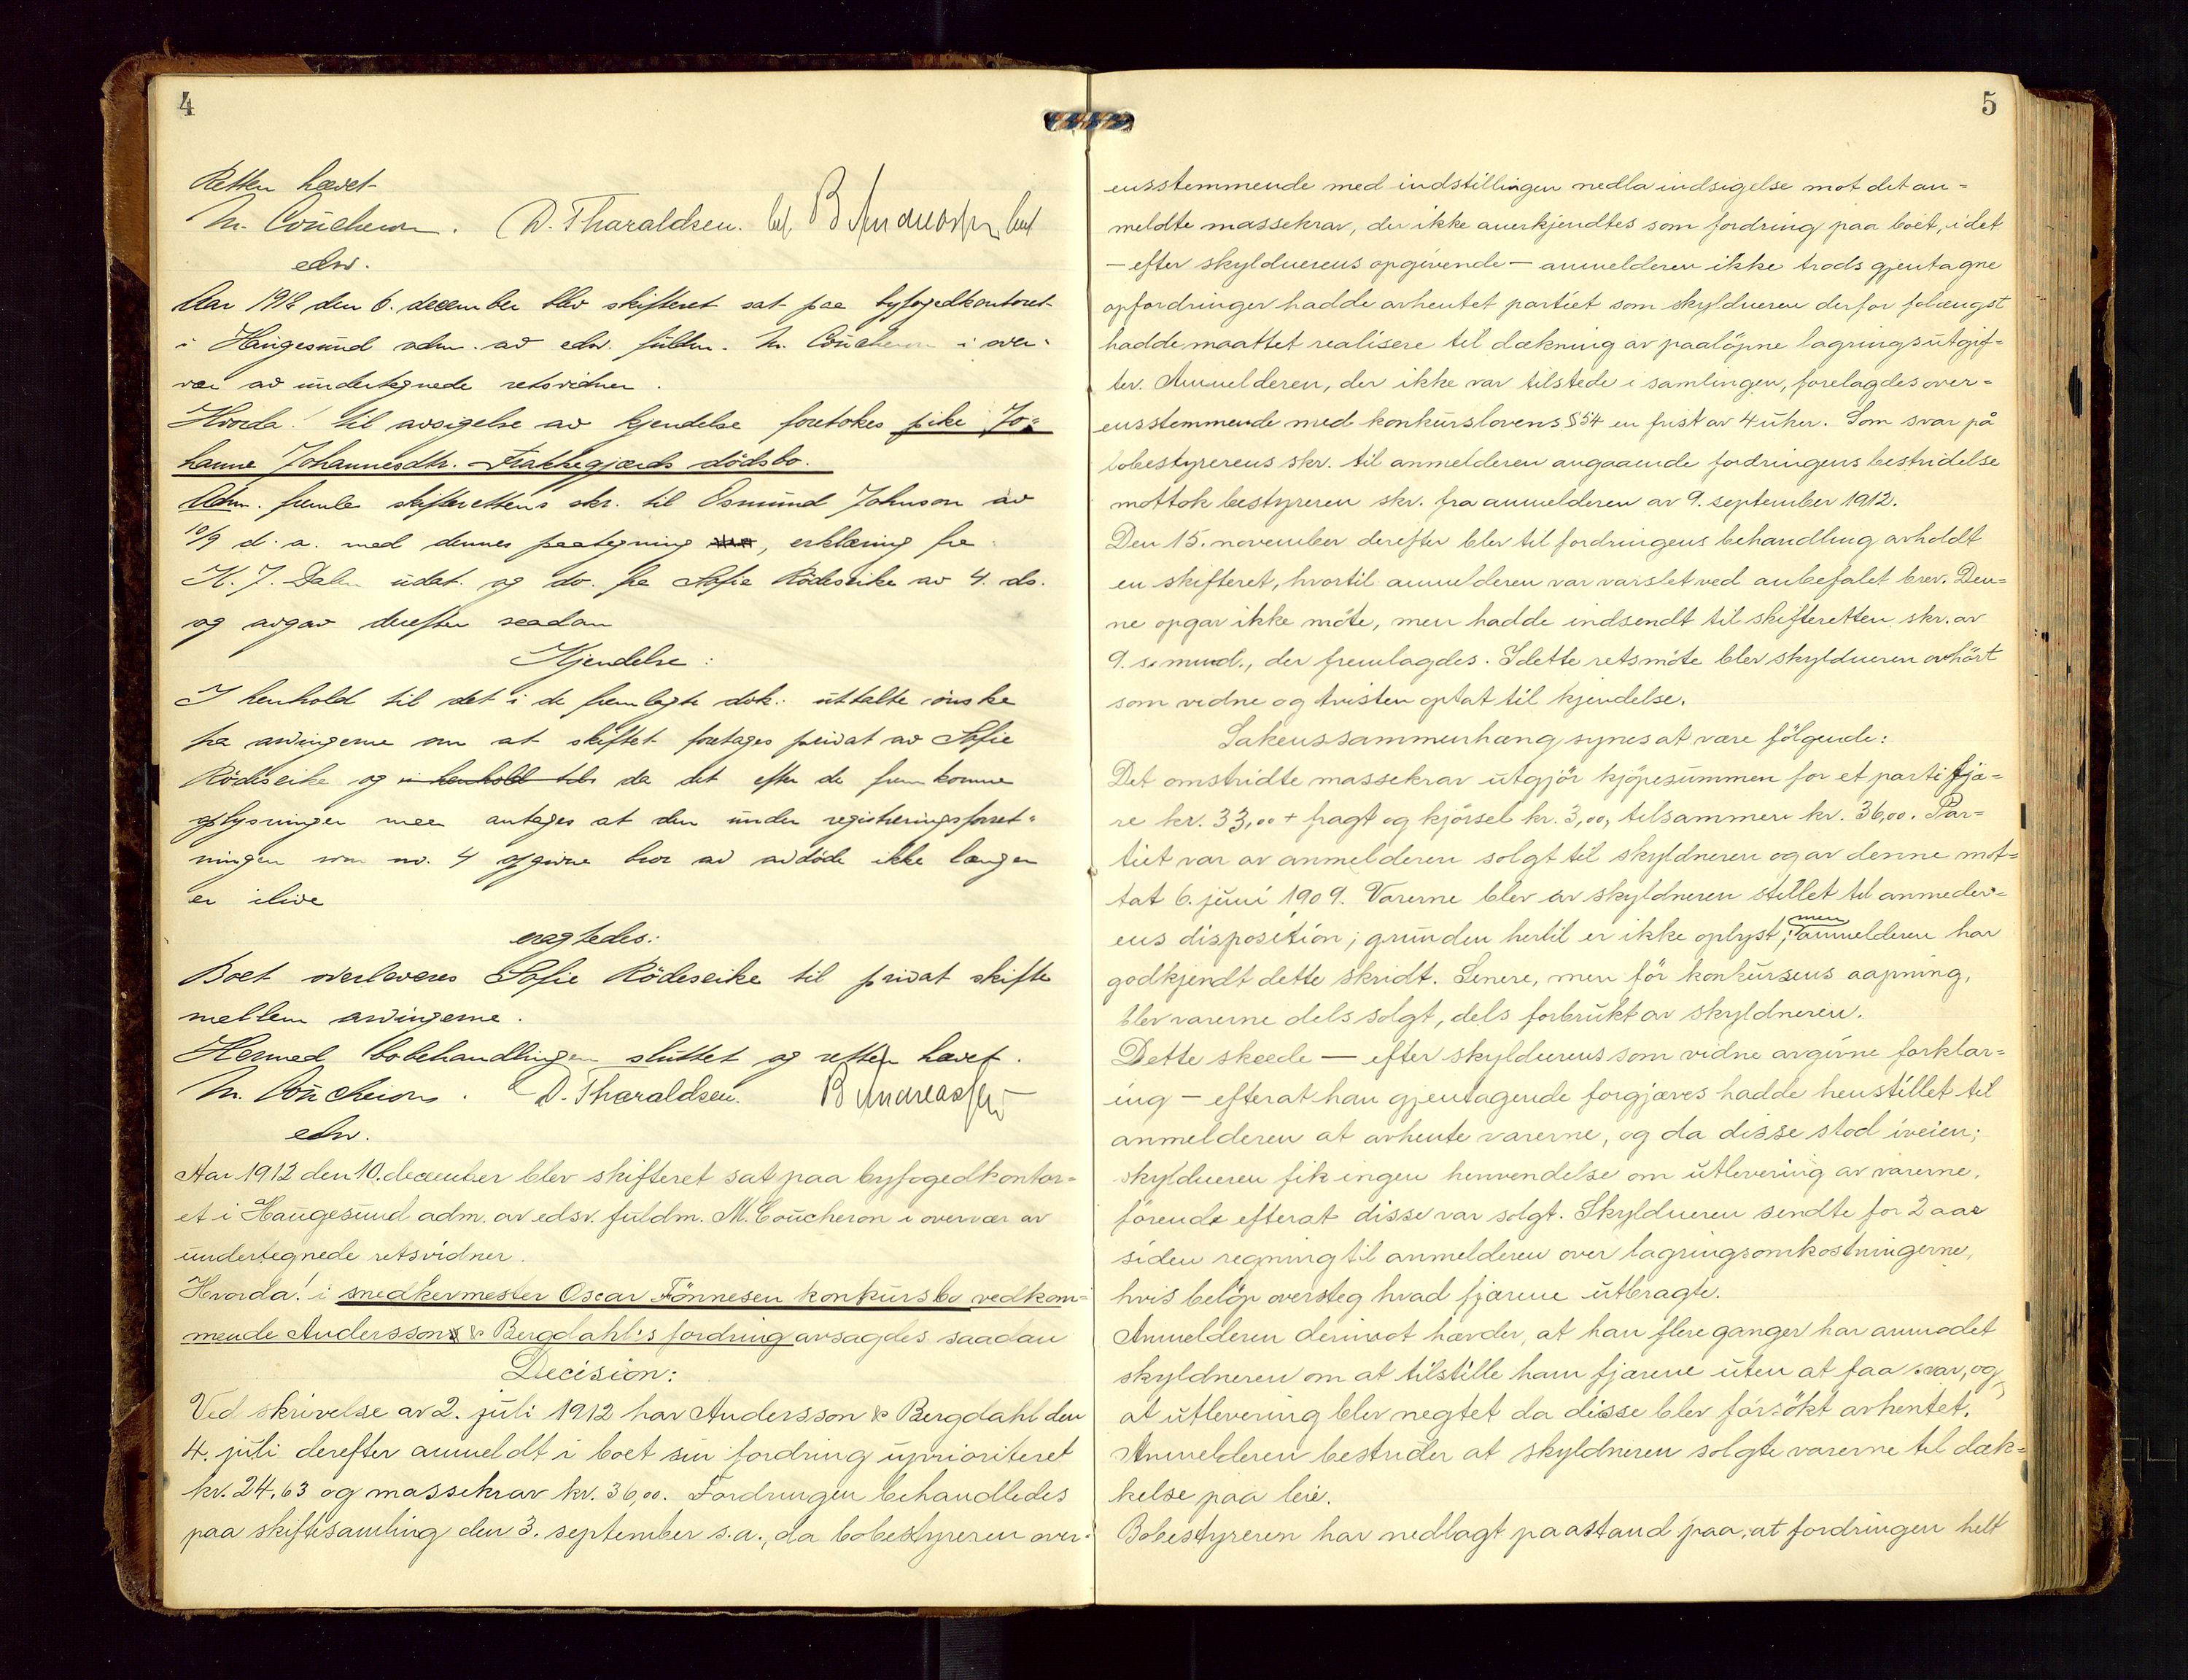 4
Retten hævet
M. Coucheron. D. Tharaldsen. bef. B. Andreassen bef
edsv.
Aar 1912 den 6. december blev skifteret sat paa byfogedkontoret
i Haugesund adm. av edsv. fuldm. M. Coucheron i over-
vær av undertegnede retsvidner.
Hvorda! til avsigelse av kjendelse foretokes pike Jo-
hanne Johannesdtr. Frakkegjærds dödsbo.
Adm. fremla skifterettens skr. til Osmund Johnson av
10/9 d. a. med dennes paategning, erklæring fra
K. J. Dalen udat. og do. fra Sofie Rödeseike av 4. ds.
og avgav derefter saadan
Kjendelse:
I henhold til det i de fremlagte dok. uttalte önske
fra arvingerne om at skiftet foretages privat av Sofie
Rödeseike og i henhold til da det efter de fremkomne
oplysninger maa antages at den under registreringsforret-
ningen som no. 4 opgivne bror av avdöde ikke længer
er ilive
eragtedes:
Boet overleveres Sofie Rödeseike til privat skifte
mellem arvingerne.
Hermed bobehandlingen sluttet og retten hævet.
M. Coucheron. D. Tharaldsen. B Andreassen
edsv.
Aar 1912 den 10. december blev skifteret sat paa byfogedkontor-
et i Haugesund adm. av edsv. fuldm. M. Coucheron i overvær av
undertegnede retsvidner.
Hvorda! i snedkermester Oscar Tönnesen konkursbo vedkom-
mende Andersson & Bergdahl's fordring avsagdes saadan
Decision:
Ved skrivelse av 2. juli 1912 har Andersson & Bergdahl den
4. juli derefter anmeldt i boet sin fordring uprioriteret
kr. 24,63 og massekrav kr. 36,00. Fordringen behandledes
paa skiftesamling den 3. september s.a., da bobestyreren over-
5
ensstemmende med indstillingen nedla indsigelse mot det an-
meldte massekrav, der ikke anerkjendtes som fordring paa boet, idet
— efter skyldnerens opgivende — anmelderen ikke trods gjentagne
opfordringer hadde avhentet partiet som skyldneren derfor forlængst
hadde maattet realisere til dækning av paaløpne lagringsutgif-
ter. Anmelderen, der ikke var tilstede i samlingen, forelagdes over-
ensstemmende med konkurslovens § 54 en frist av 4 uker. Som svar på
bobestyrerens skr. til anmelderen angaaende fordringens bestridelse
mottok bestyreren skr. fra anmelderen av 9. september 1912.
Den 15. november derefter blev til fordringens behandling avholdt
en skifteret, hvortil anmelderen var varslet ved anbefalet brev. Den-
ne opgav ikke möte, men hadde indsendt til skifteretten skr. av
9. s. mnd., der fremlagdes. I dette retsmöte blev skyldneren avhört
som vidne og tvisten optat til kjendelse.
Sakens sammenhæng synes at være fölgende:
Det omstridte massekrav utgjör kjöpesummen for et parti fjæ-
re kr. 33,00 + fragt og kjörsel kr. 3,00, tilsammen kr. 36,00. Par-
tiet var av anmelderen solgt til skyldneren og av denne mot-
tat 6. juni 1909. Varerne blev av skyldneren stillet til anmeder-
ens disposition; grunden hertil er ikke oplyst; men anmelderen har
godkjendt dette skridt. Senere, men för konkursens aapning,
blev varerne dels solgt, dels forbrukt av skyldneren.
Dette skeede — efter skyldnerens som vidne avgivne forklar-
ing — efterat han gjentagende forgjæves hadde henstillet til
anmelderen at avhente varerne, og da disse stod iveien;
skyldneren fik ingen henvendelse om utlevering av varerne,
förend efterat disse var solgt. Skyldneren sendte for 2 aar
siden regning til anmelderen over lagringsomkostningerne,
hvis belöp oversteg hvad fjærene utbragte.
Anmelderen derimot hævder, at han flere ganger har anmodet
skyldneren om at tilstille ham fjærene uten at faa svar, og
at utlevering blev negtet da disse blev forsökt avhentet.
Anmelderen bestrider at skyldneren solgte varerne til dæk-
kelse paa leie.
Bobestyreren har nedlagt paastand paa, at fordringen helt